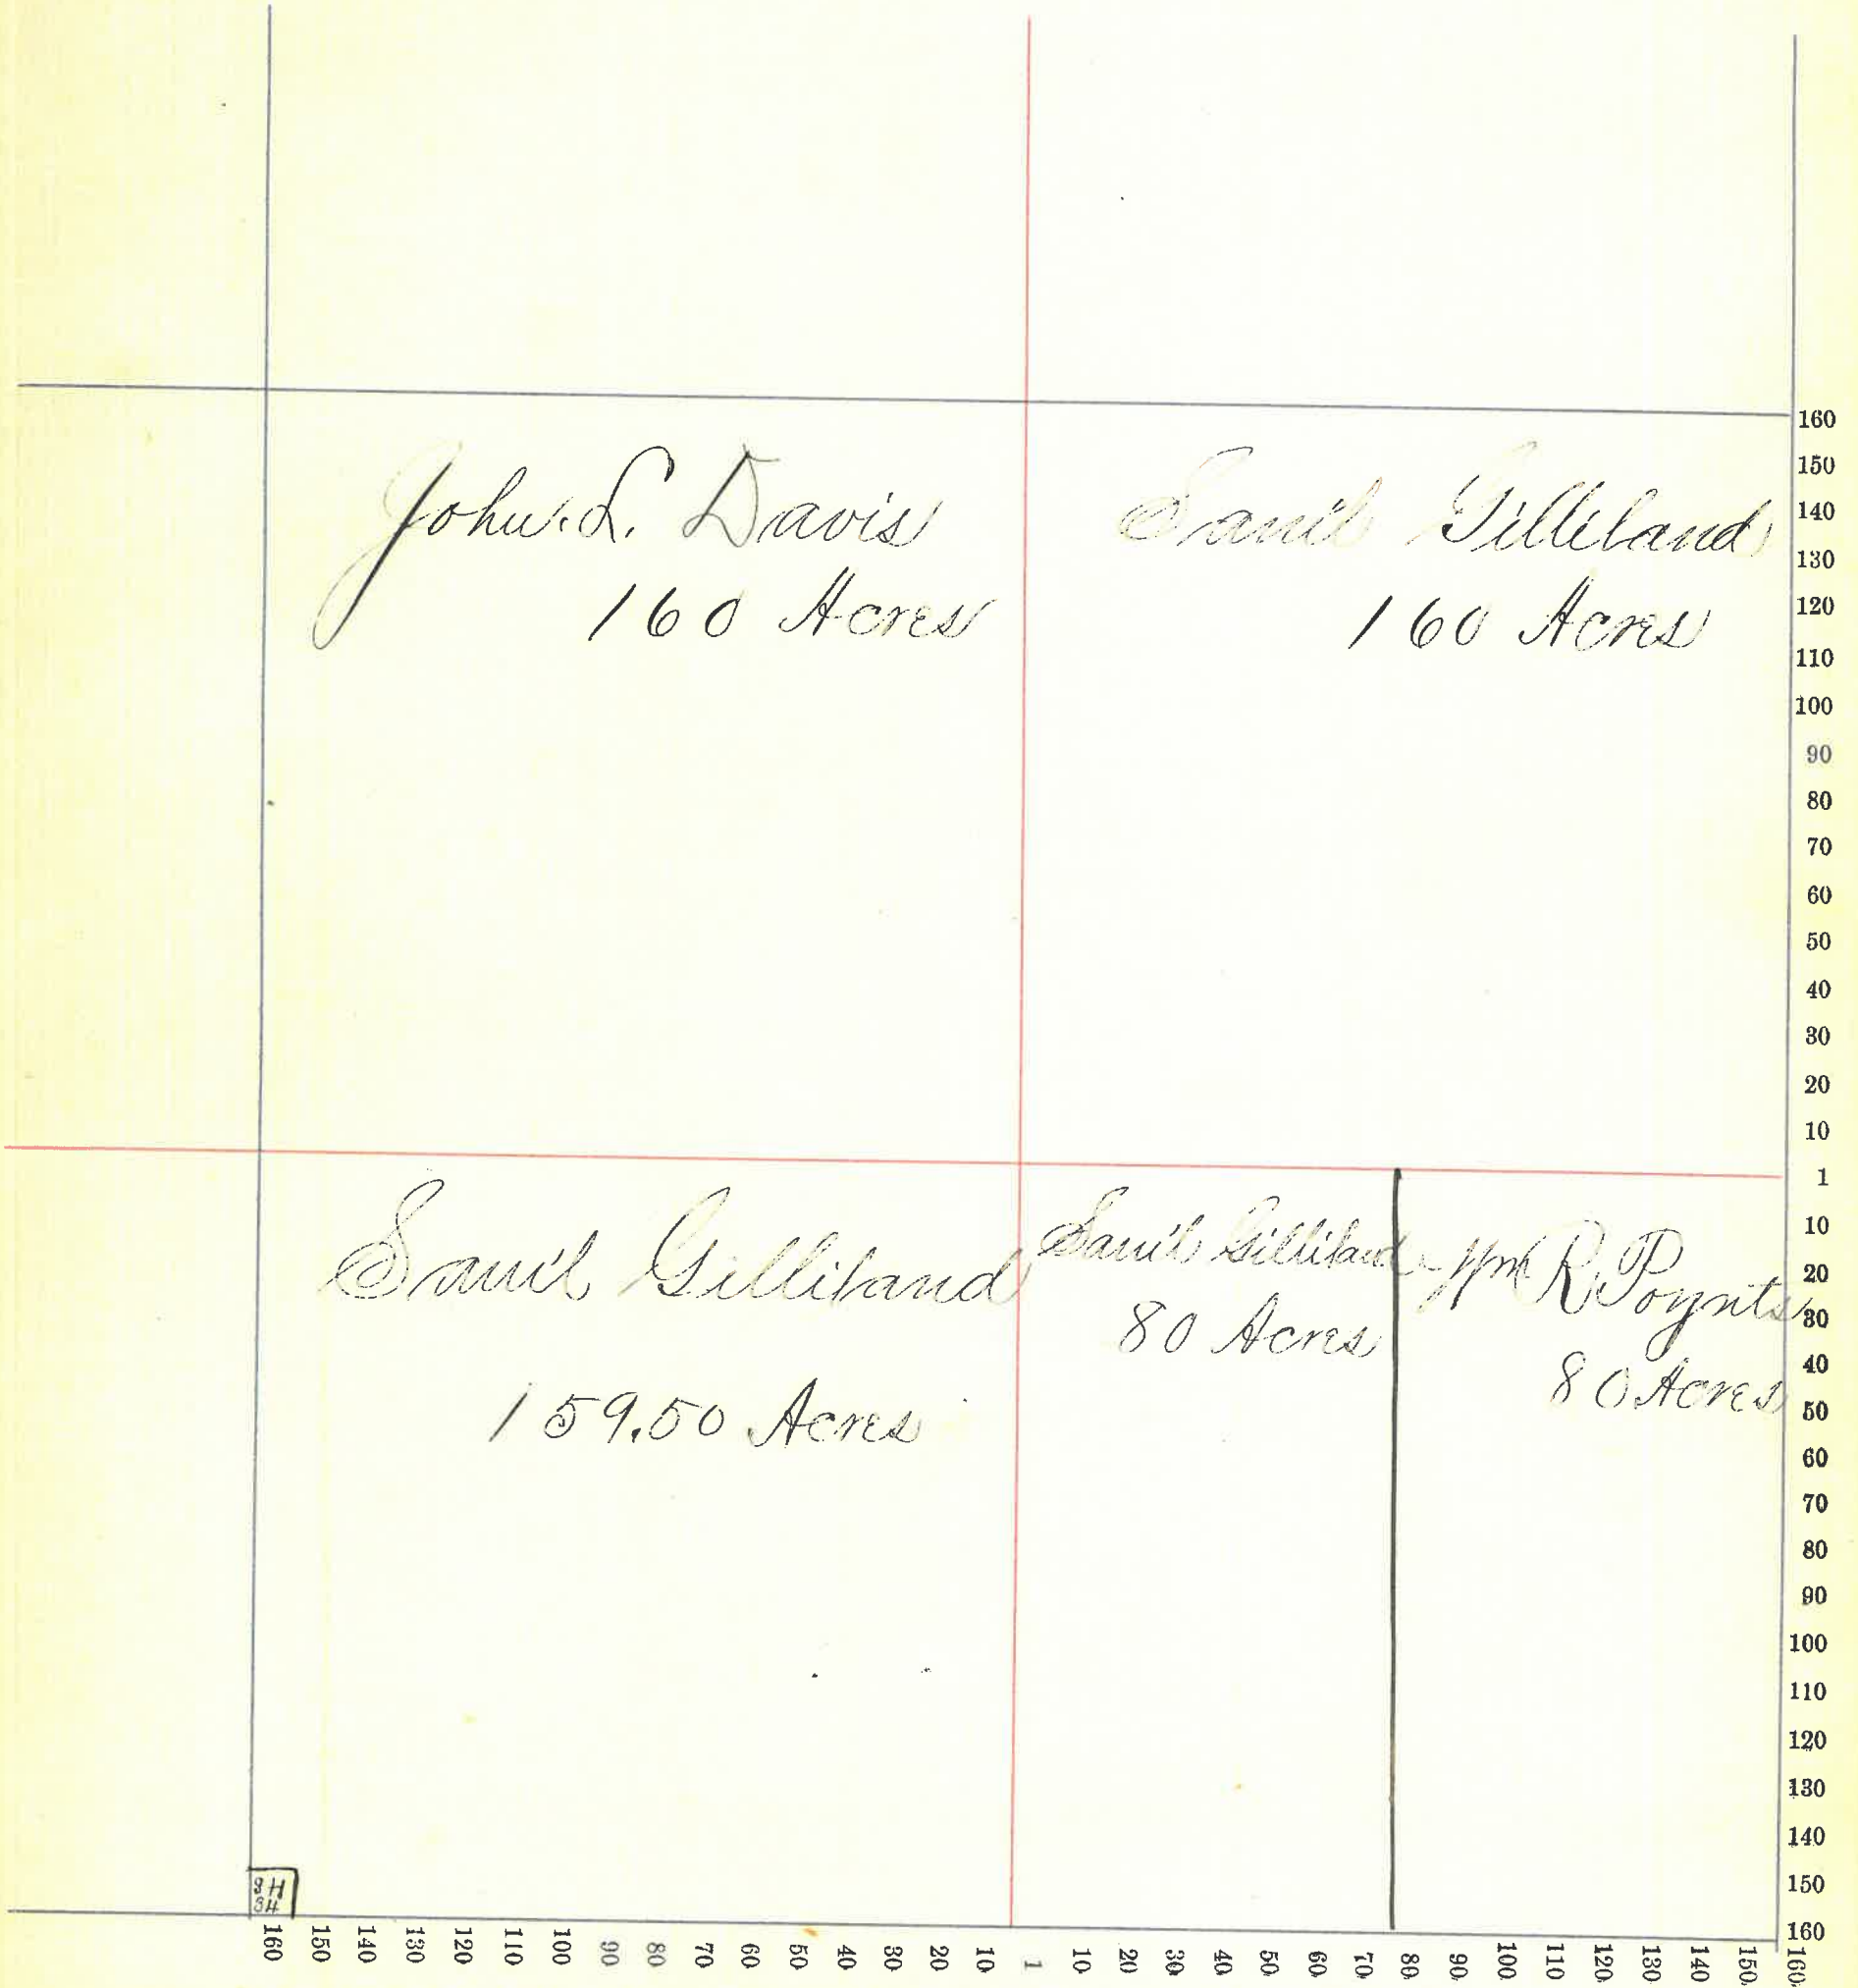 John. L. Davis
160 Acres
Sam'l Gilliland
160 Acres
Sam'l Gilliland
159.50 Acres
Sam'l Gilliland
80 Acres
Wm R. Poynts
80 Acres
SH
160
150
140
130
120
110
100
90
80
70
60
50
40
30
20
10
1
10
20
30
40
50
60
70
80
90
100
110
120
130
140
150
160
160 150 140 130 120 110 100 90 80 70 60 50 40 30 20 10 1 10 20 30 40 50 60 70 80 90 100 110 120 130 140 150 160